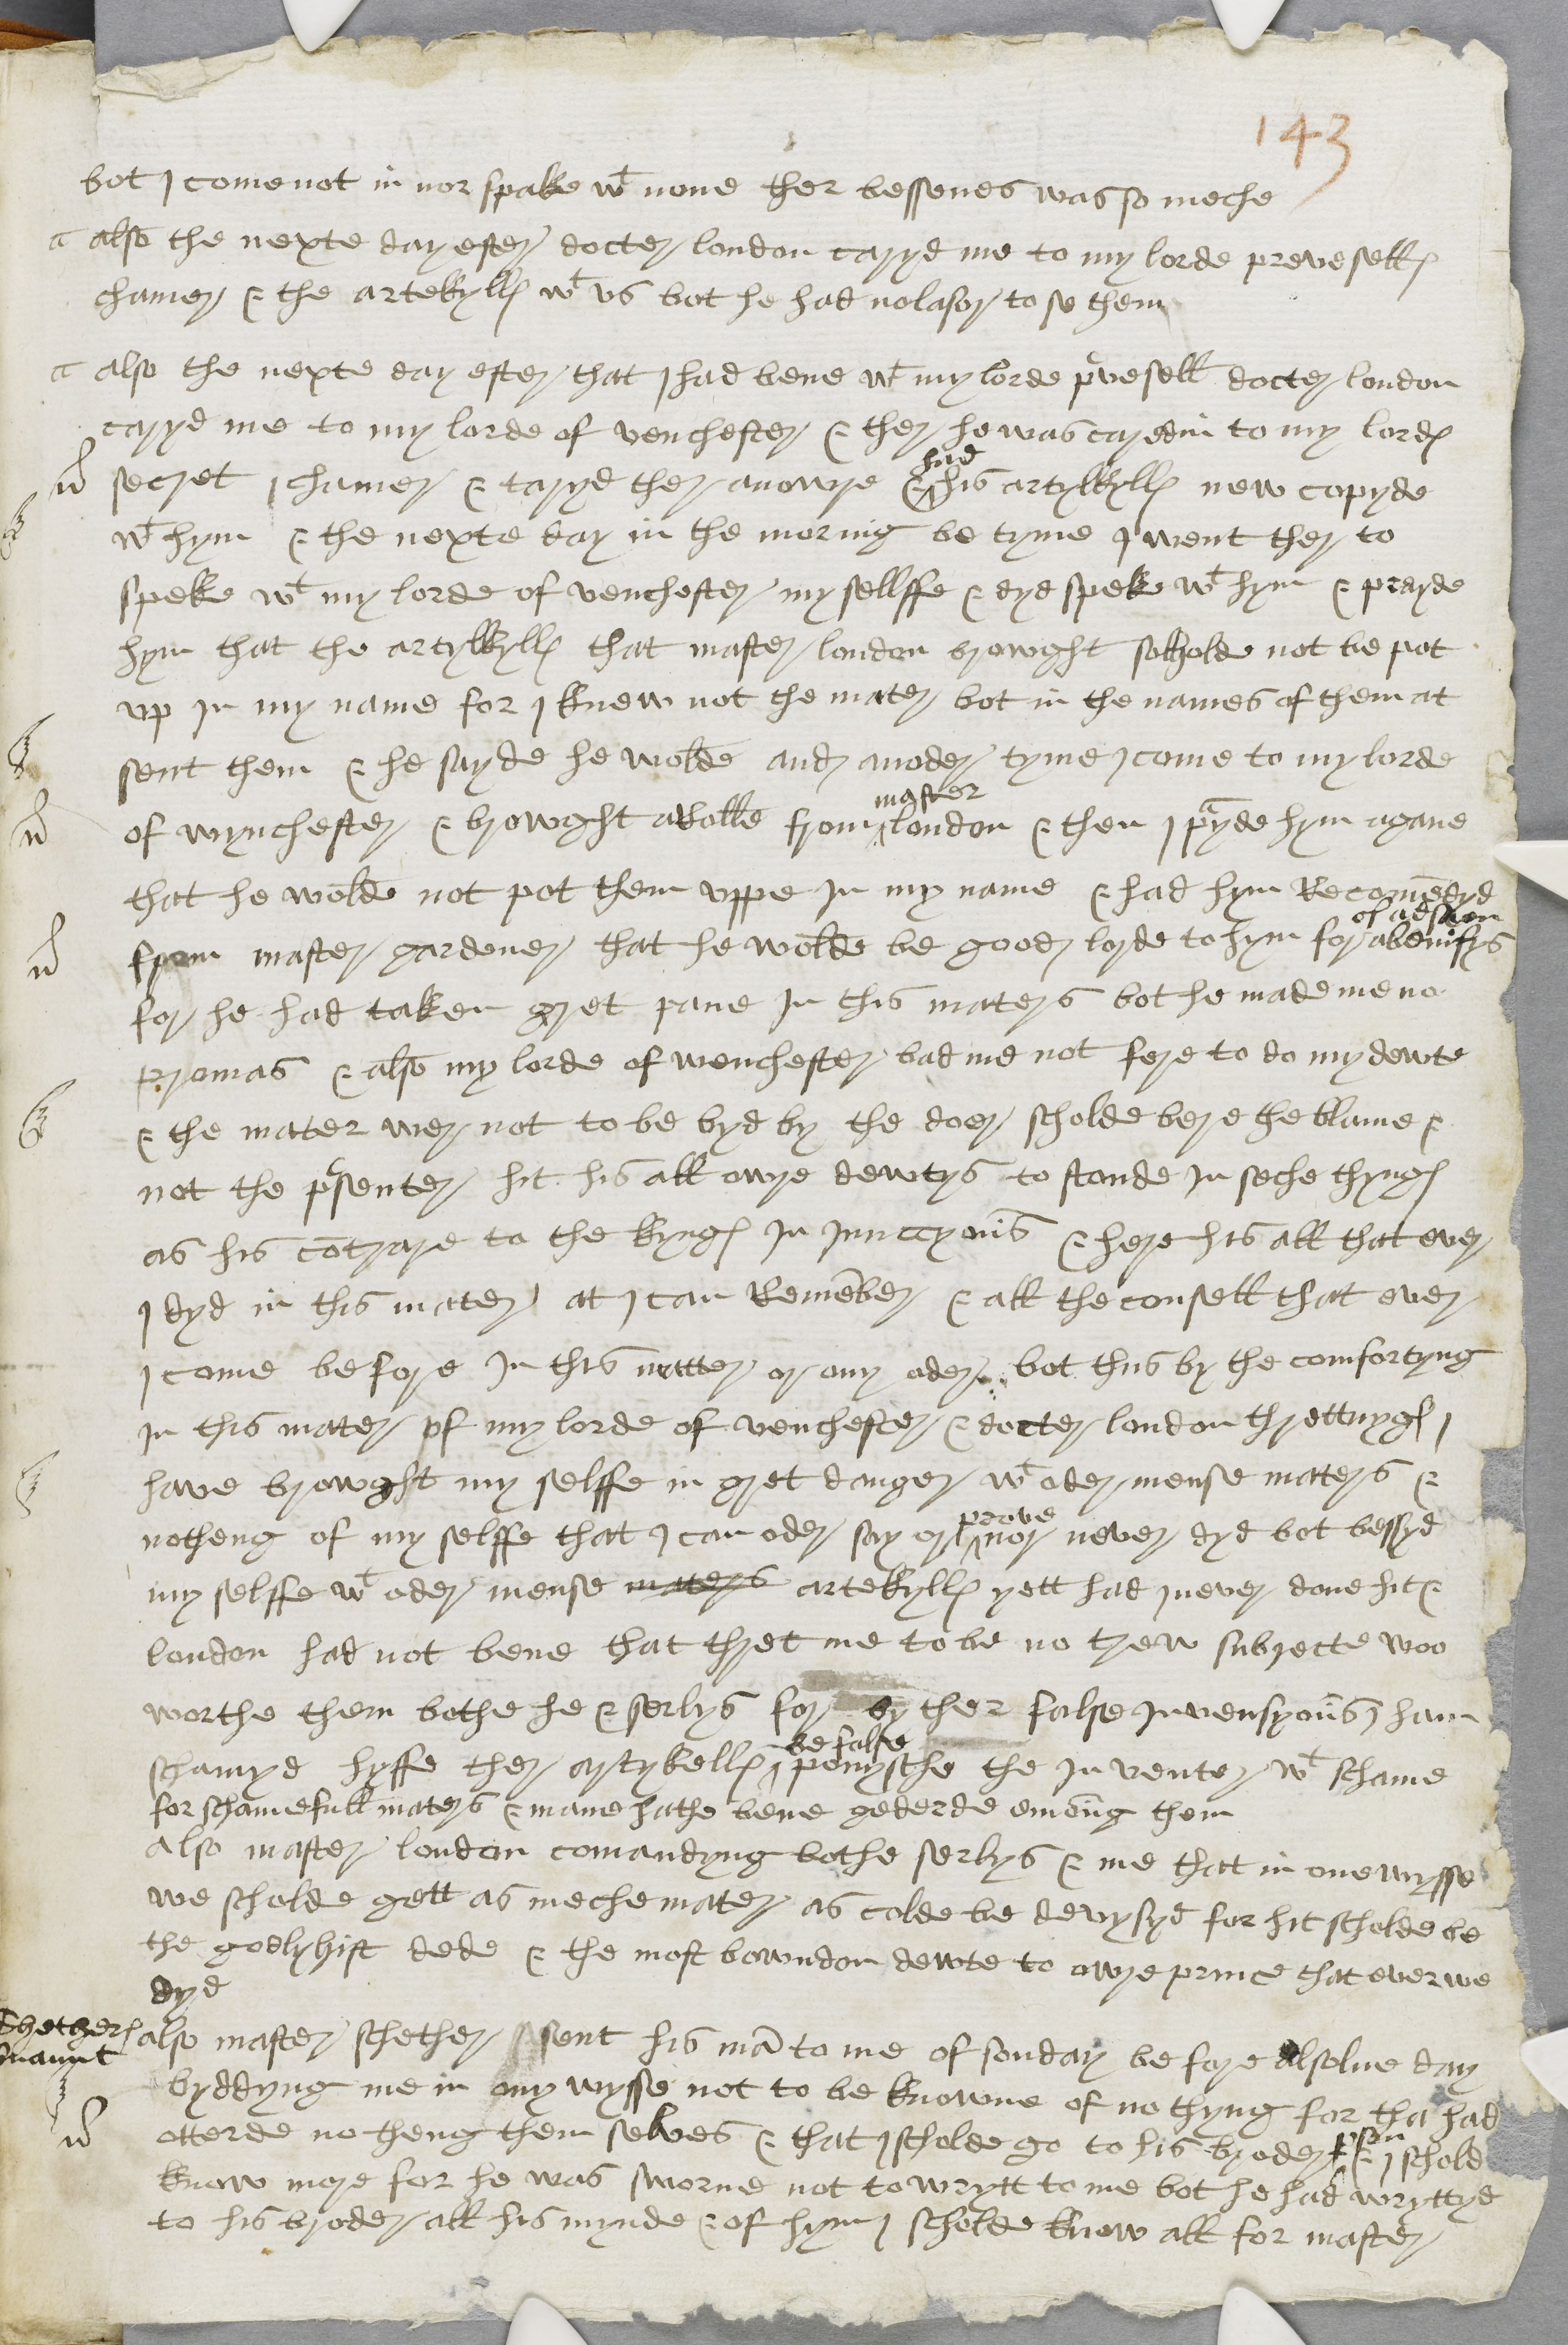 143
bot I come not in nor spake wt none ther bessenes was so meche
a also the nexte day efter docter london caryd me to my lorde preve sell
chamer & the artekyll wt us bot he had no lasor to se them
a also the nexte day efter that I had bene wt my lorde pvesell docter london
caryd me to my lorde of venchester & ther he was caredin to my lord
secret chamer & taryd ther an owre & had his artykyll new copyde
wt hym & the nexte day in the mornig be tyme I went ther to
speke wt my lorde of venchester my sellffe & dyd speke wt hym & prayde
hym that the artykyll that master london browght scholde not be pot
up in my name for I knew not the mater bot in the names of them at
sent them & he sayde he wolde and anoder tyme I come to my lorde
of wynchester & browght a bolle from master london & then I pyde hym agane
that he wolde not pot them uppe in my name & had hym Recomedyd
from master gardener that he wolde be good lorde to hym for a benifys of adsson
for he had taken gret pane In this maters bot he made me no
promas & also my lorde of wenchester bad me not fere to do my dewte
& the mater wer not to be byd by the doer scholde bere the blame &
not the psenter hit his all owre dewtys to stonde In seche thyng
as his cotrare to the kyng In Junccyons & here his all that ever
I dyd in this mater at I can Remeber & all the consell that ever
I come before In this matter or ony oder bot thus by the comfortyng
In this mater of my lorde of venchester & docter london threttnyg I
have browght my selffe in gret danger wt oder mense matters &
notheng of my selffe that I can oder say or prove nor never dyd bot bessyd
my selffe wt oder mense maters artekyll yett had I never done hit &
london had not bene that thret me to be no trew subjecte woo
worthe them bothe he & serlys for by ther false Invensyons I ham
schamyd hyffe ther artykell be false ponysche the Inventer wt schame
for schamefull maters & mane hathe bene gederde emong them
also master london comandyng bothe serlys & me that in one wysse
we scholde gett as meche mater as colde be devysyd for hit scholde be
the godlyhist dede & the most bowndon dewte to owre prince that ever we
dyd
Shether
Mannt
also master schether sent his ma to me of sonday be fore alsolne day
byddyng me in ony wysse not to be knowne of no thyng for tha had
otterde no theng them selves & that I scholde go to his broder pson & I schold
know more for he was sworne not to wrytt to me bot he had wryttyd
to his broder all his mynde & of hym I scholde know all for master